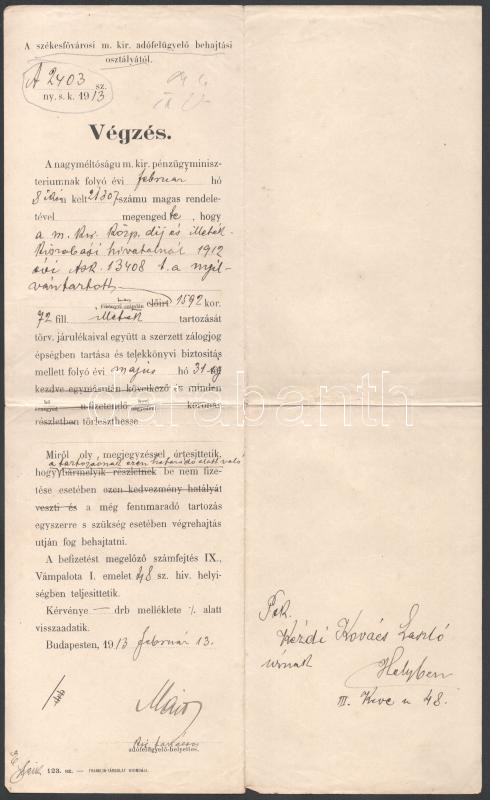 A székesfővárosi m. kir. adófelügyelő behajtási
osztályától.
A 2403 sz.
ny. s. k. 1913
Végzés.
A nagyméltóságu m. kir. pénzügyminisz-
teriumnak folyó évi február hó
8 ikán kelt 21307 számu magas rendele-
tével megengedte, hogy
a m. kir. közp. díj és illeték-
kiszabási hivatalnál 1912
évi 13408 t. a nyil-
vántartott
előirt 1592 kor.
72 fill. illeték tartozását
törv. járulékaival együtt a szerzett zálogjog
épségben tartása és telekkönyvi biztositás
mellett folyó évi május hó 31-ig
kezdve egymásután következő és minden
fizetendő koronás
részletben törleszthesse
Miről oly megjegyzéssel értesittetik,
a tartozásnak ezen határidő alatt való
hogy bármelyik részletnek be nem fize-
tése esetében ezen kedvezmény hatályát
veszti és a még fennmaradó tartozás
egyszerre s szükség esetében végrehajtás
utján fog behajtatni.
A befizetést megelőző számfejtés IX.,
Vámpalota I. emelet 48 sz. hiv. helyi-
ségben teljesittetik.
Kérvénye — drb melléklete ·/. alatt
visszaadatik.
Budapesten, 1913 február 13.
adófelügyelő-helyettes.
123. sz. — FRANKLIN-TÁRSULAT NYOMDÁJA.
Tek.
Kézdi Kovács László
úrnak
Helyben
III. Keve u 48.
darabanth